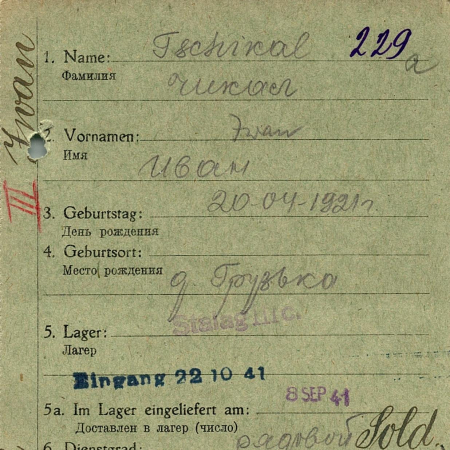 229
a
Iwan
III
1. Name: Tschikal
Фамилия Чикал
2. Vornamen: Iwan
Имя Иван
3. Geburtstag: 20-04-1921 г.
День рождения
4. Geburtsort:
Место рождения д. Грузька
5. Lager: Stalag II C.
Лагер
Eingang 22 10 41
8 SEP 41
5a. Im Lager eingeliefert am:
Доставлен в лагер (число)
6. Dienstgrad: рядовой Sold.